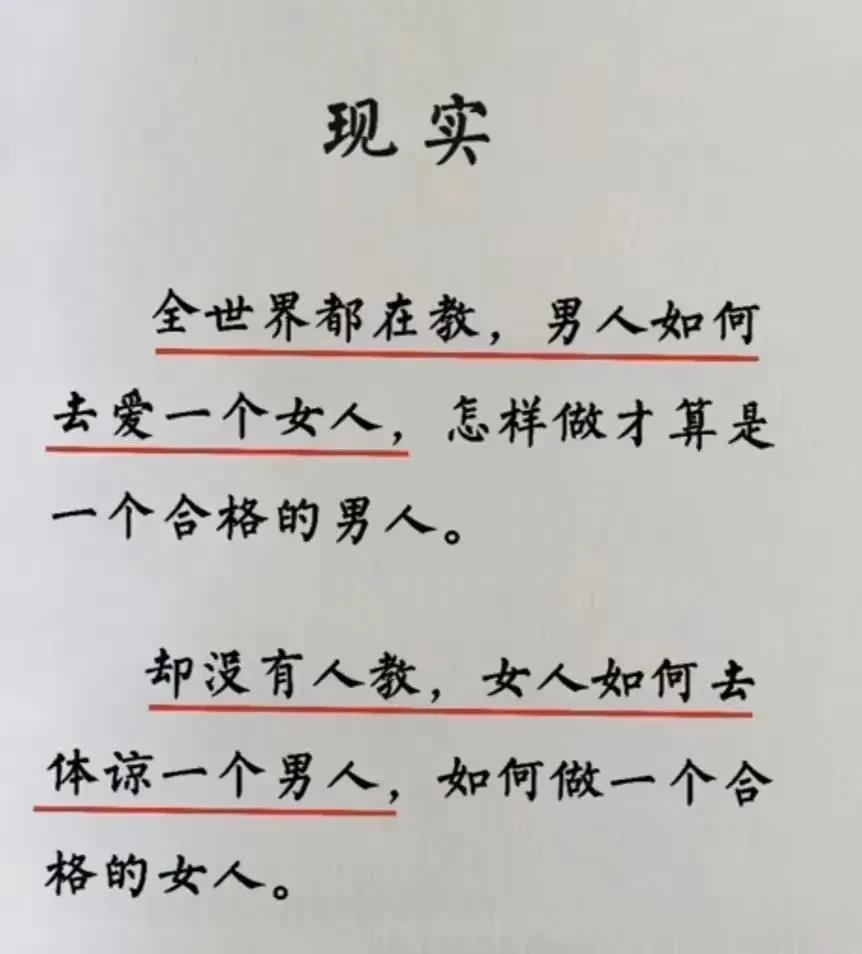 现实
全世界都在教，男人如何
去爱一个女人，怎样做才算是
一个合格的男人。
却没有人教，女人如何去
体谅一个男人，如何做一个合
格的女人。